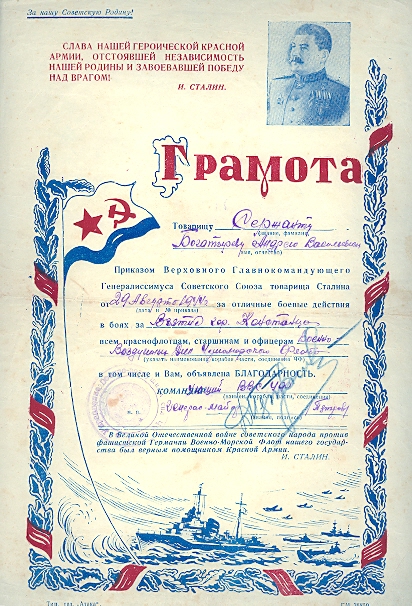 За нашу Советскую Родину!
СЛАВА НАШЕЙ ГЕРОИЧЕСКОЙ КРАСНОЙ
АРМИИ, ОТСТОЯВШЕЙ НЕЗАВИСИМОСТЬ
НАШЕЙ РОДИНЫ И ЗАВОЕВАВШЕЙ ПОБЕДУ
НАД ВРАГОМ!
И. СТАЛИН.
Грамота
Товарищу Сержанту
(звание, фамилия
Богатыреву Андрею Васильевичу
имя, отчество)
Приказом Верховного Главнокомандующего
Генералиссимуса Советского Союза товарища Сталина
от 29 Августа 1944г за отличные боевые действия
(дата и № приказа)
в боях за Взятие гор. Констанца
всем краснофлотцам, старшинам и офицерам Военно-
Воздушных Сил Черноморского Флота
(указать наименование корабля части, соединения ЧФ)
в том числе и Вам, объявлена БЛАГОДАРНОСТЬ.
КОМАНДУЮЩИЙ ВВС ЧФ
(наимен. корабля, части, соединения)
м. п. Генерал-майор
В Великой Отечественной войне советского народа против
фашистской Германии Военно-Морской Флот нашего государства
был верным помощником Красной Армии.
И. СТАЛИН.